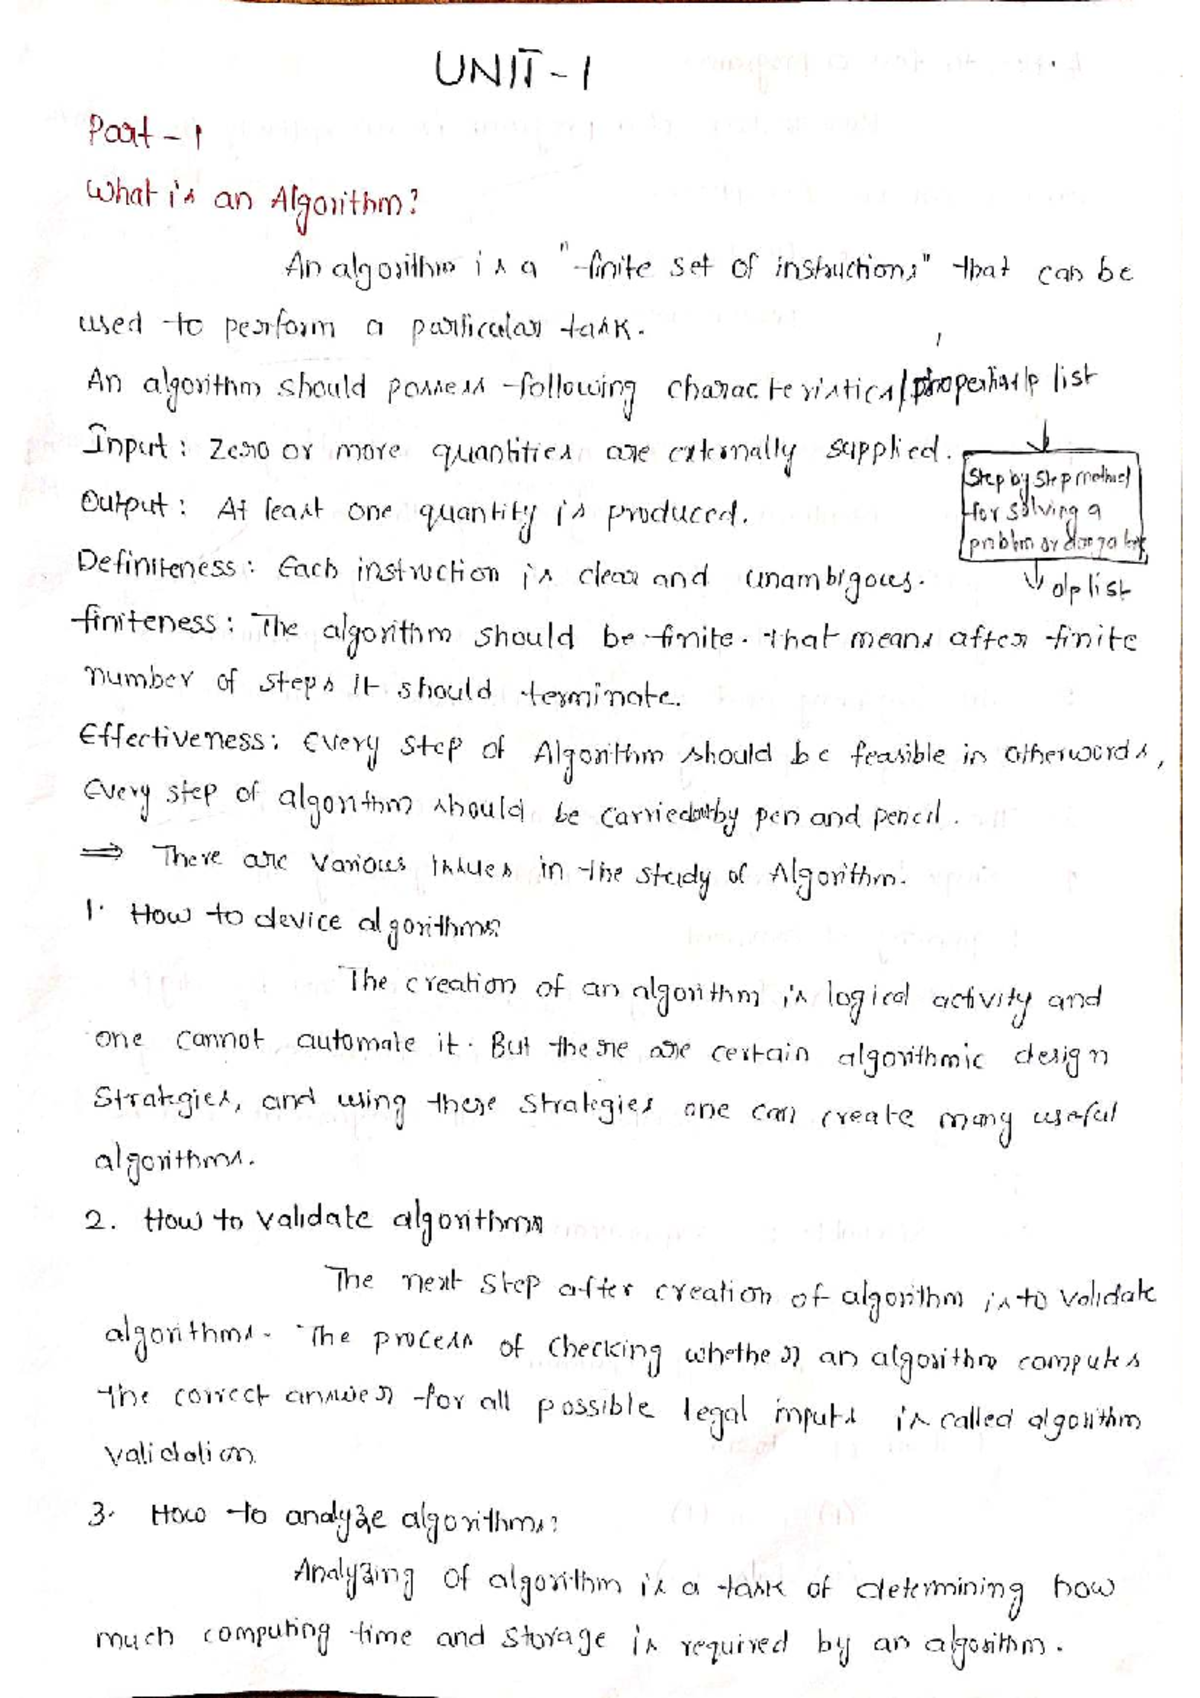 UNIT-1
Part-1
What is an Algorithm?
An algorithm is a "finite set of instructions" that can be
used to perform a particular task.
An algorithm should possess following characteristics/properties
i/p list
Input: Zero or more quantities are externally supplied.
Output: At least one quantity is produced.
Step by step method
for solving a
problem or doing a task
o/p list
Definiteness: Each instruction is clear and unambigous.
finiteness: The algorithm should be finite. that means after finite
number of steps it should terminate.
Effectiveness: Every step of Algorithm should be feasible in otherwords,
Every step of algorithm should be carried out by pen and pencil.
⇒ There are various issues in the study of Algorithm.
1. How to device algorithms:
The creation of an algorithm is logical activity and
one cannot automate it. But there are certain algorithmic design
Strategies, and using these strategies one can create many useful
algorithms.
2. How to validate algorithms
The next step after creation of algorithm is to validate
algorithms. The process of checking whether an algorithm computes
the correct answer for all possible legal inputs is called algorithm
validation
3. How to analyze algorithms:
Analyzing of algorithm is a task of determining how
much computing time and storage is required by an algorithm.